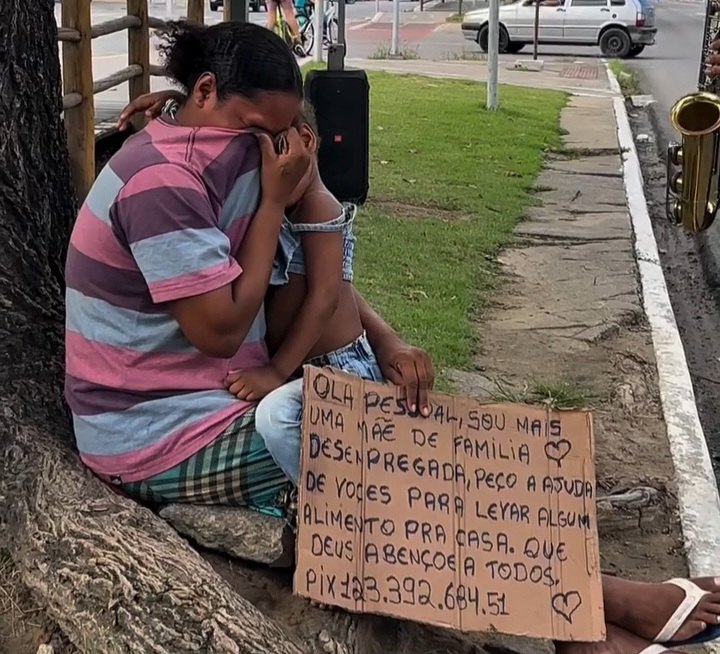 OLA PESSOAL, SOU MAIS
UMA MÃE DE FAMÍLIA
DESENPREGADA, PEÇO A AJUDA
DE VOÇES PARA LEVAR ALGUM
ALIMENTO PRA CASA. QUE
DEUS ABENÇOE A TODOS.
PIX 123.392.684.51